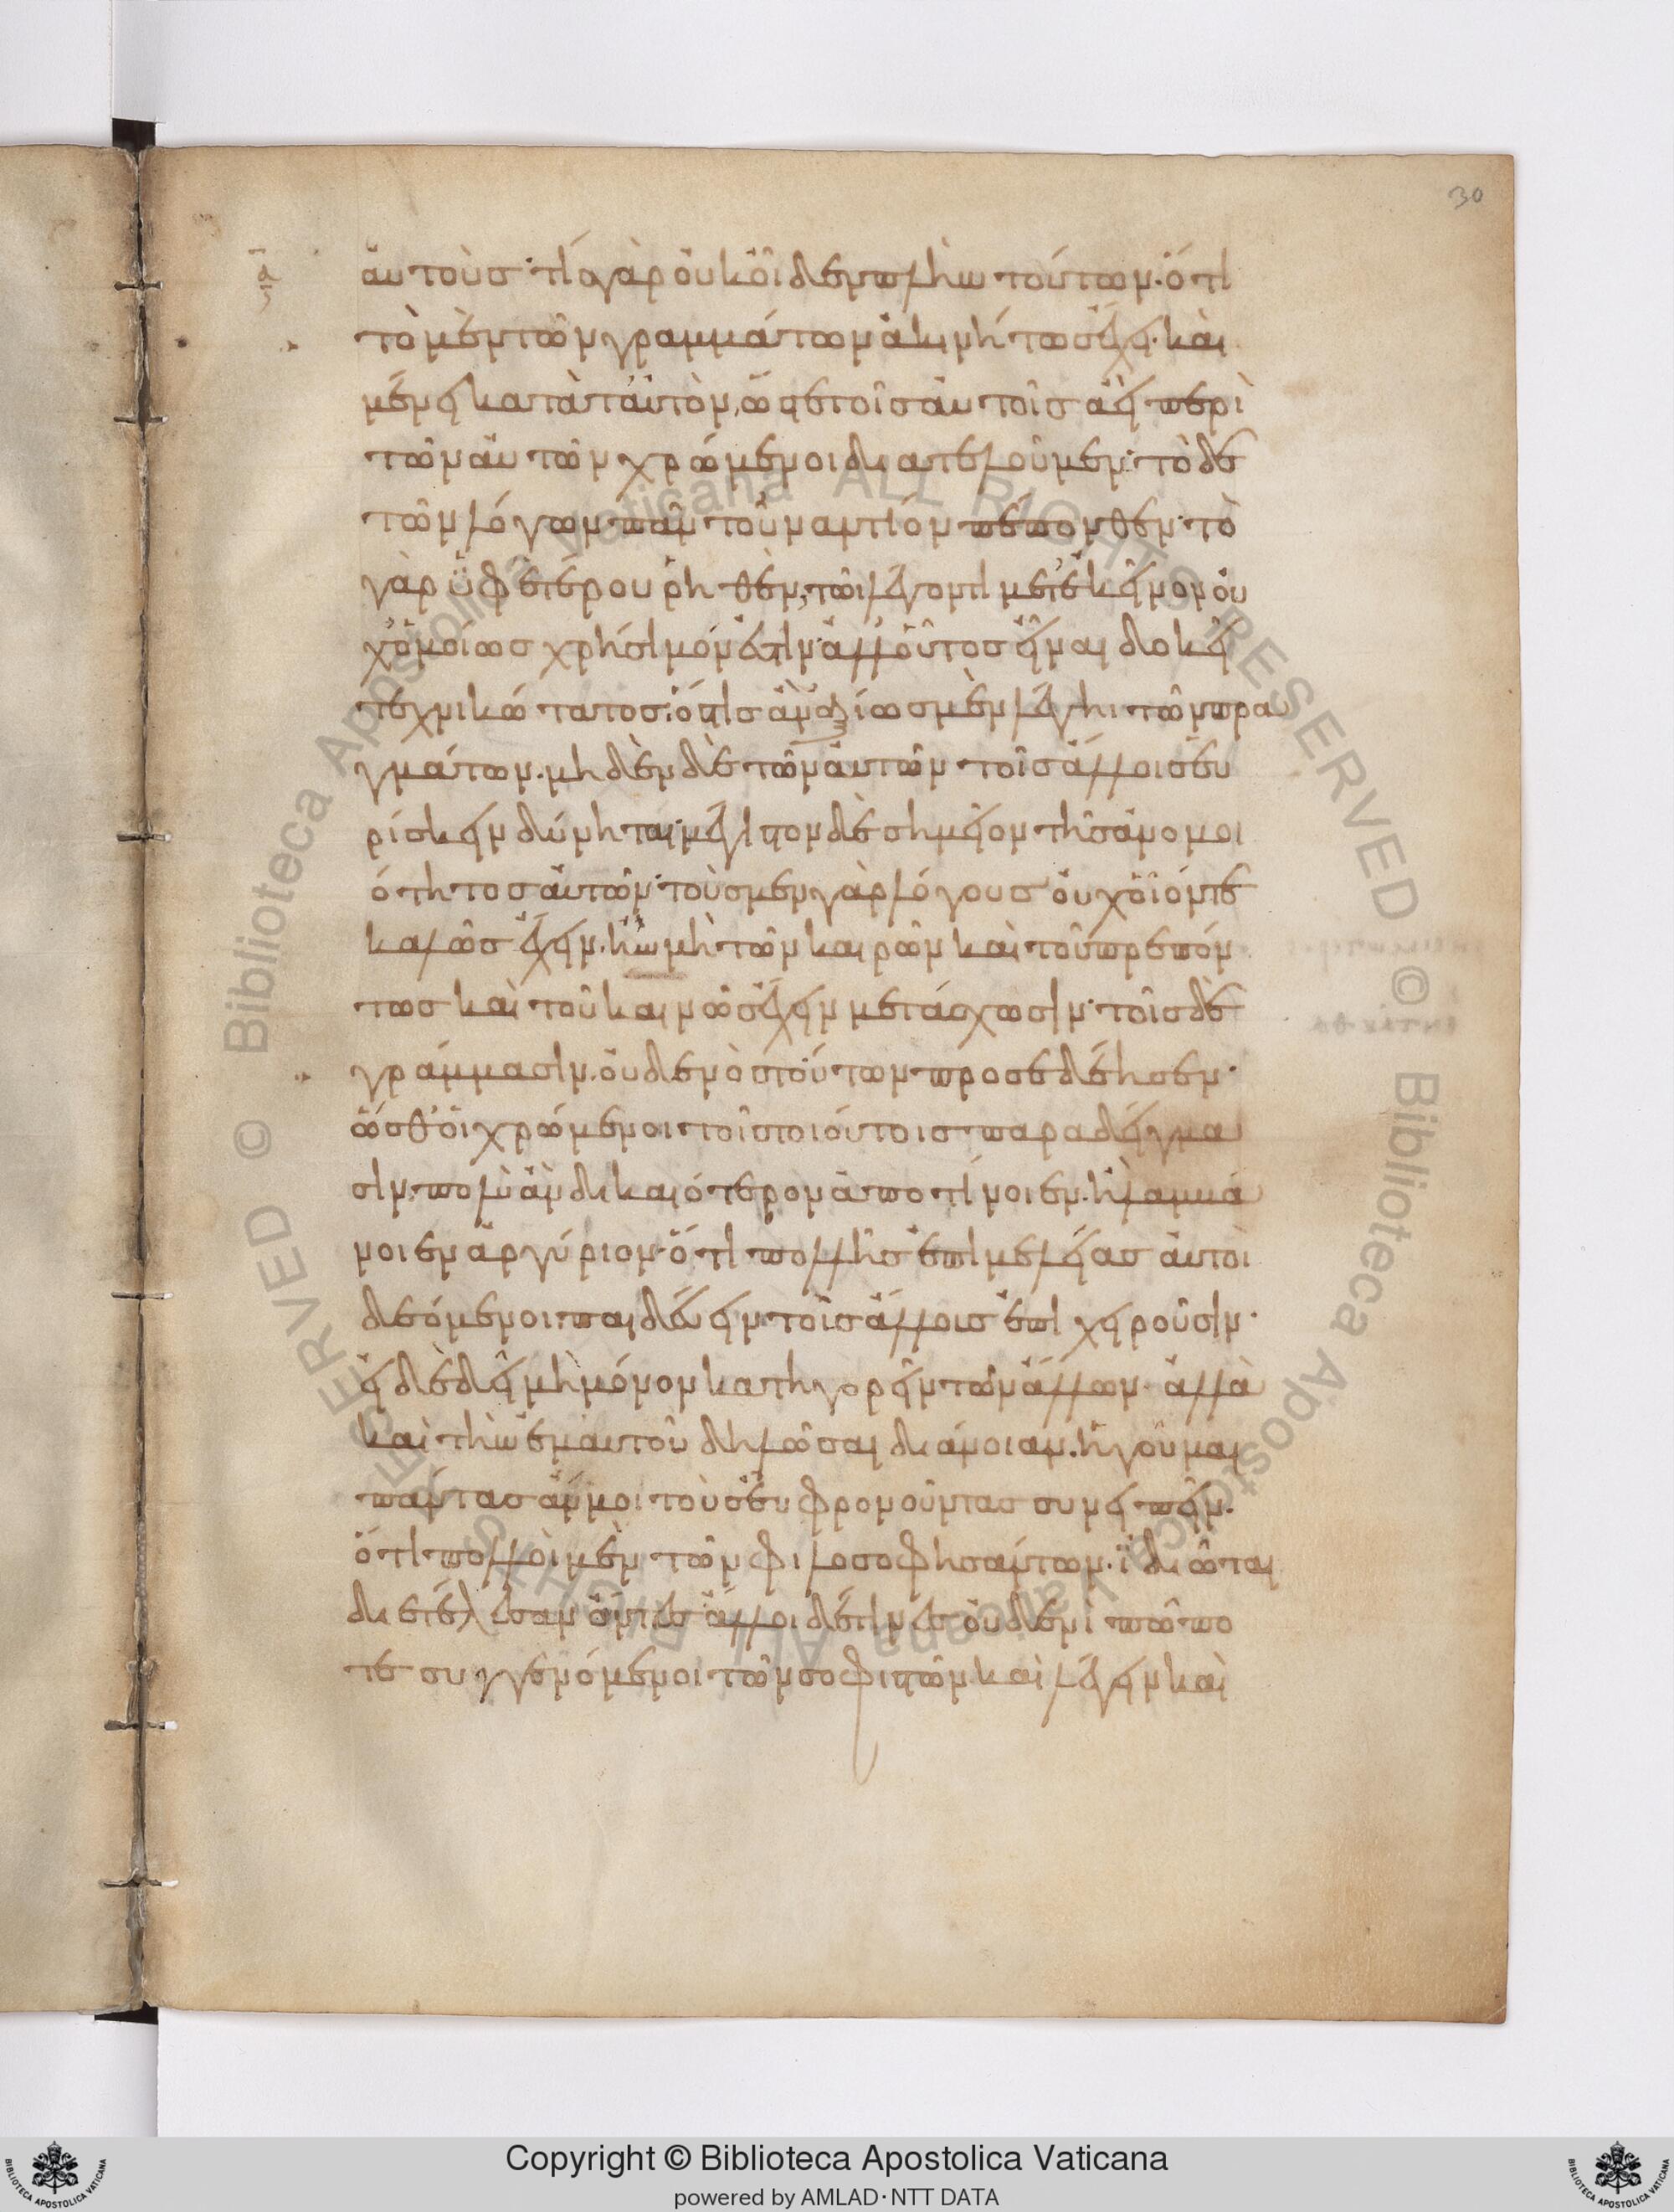 30
αὐτούς· τί γὰρ οὐκ οἶδεν πλὴν τούτων· ὅτι
τὸ μὲν τῶν γραμμάτων ἀκινήτως ἔχει· καὶ
μένει κατὰ ταυτόν, ὥστε τοῖς αὐτοῖς ἀεὶ περὶ
τῶν αὐτῶν χρώμενοι διατελοῦμεν· τὸ δὲ
τῶν λόγων πᾶν τοὐναντίον πέπονθεν· τὸ
γὰρ ὑφ' ἑτέρου ῥηθέν, τῶι λέγοντι μετ' ἐκεῖνον οὐ
χ' ὁμοίως χρήσιμόν ἐστιν· ἀλλ' οὗτος εἶναι δοκεῖ
τεχνικώτατος· ὅστις ἂν ἀξίως μὲν λέγηι τῶν πρα
γμάτων. μηδὲν δὲ τῶν αὐτῶν τοῖς ἄλλοις εὑ
ρίσκειν δύνηται· μέγιστον δὲ σημεῖον τῆς ἀνομοι
ότητος αὐτῶν· τοὺς μὲν γὰρ λόγους οὐχ οἷόν τε
καλῶς ἔχειν. ἢν μὴ τῶν καιρῶν καὶ τοῦ πρεπόν
τως καὶ τοῦ καινῶς ἔχειν μετάσχωσιν· τοῖς δὲ
γράμμασιν. οὐδενὸς τούτων προσεδέησεν·
ὥσθ' οἱ χρώμενοι τοῖς τοιούτοις παραδείγμα
σιν. πολὺ ἂν δικαιότερον ἀποτίνοιεν. ἢ λαμμά
νοιεν ἀργύριον· ὅτι πολλῆς ἐπιμελείας αὐτοὶ
δεόμενοι· παιδεύειν τοὺς ἄλλους ἐπιχειροῦσιν·
εἰ δὲ δεῖ μὴ μόνον κατηγορεῖν τῶν ἄλλων· ἀλλὰ
καὶ τὴν ἐμαυτοῦ δηλῶσαι διάνοιαν. ἡγοῦμαι
πάντας ἄν μοι τοὺς εὖ φρονοῦντας συνειπεῖν.
ὅτι πολλοὶ μὲν τῶν φιλοσοφησάντων. ἰδιῶται
διετέλεσαν ὄντες ἄλλοι δέ τινες οὐδενὶ πώπο
τε συγγενόμενοι τῶν σοφιστῶν. καὶ λέγειν καὶ
Copyright © Biblioteca Apostolica Vaticana
powered by AMLAD·NTT DATA